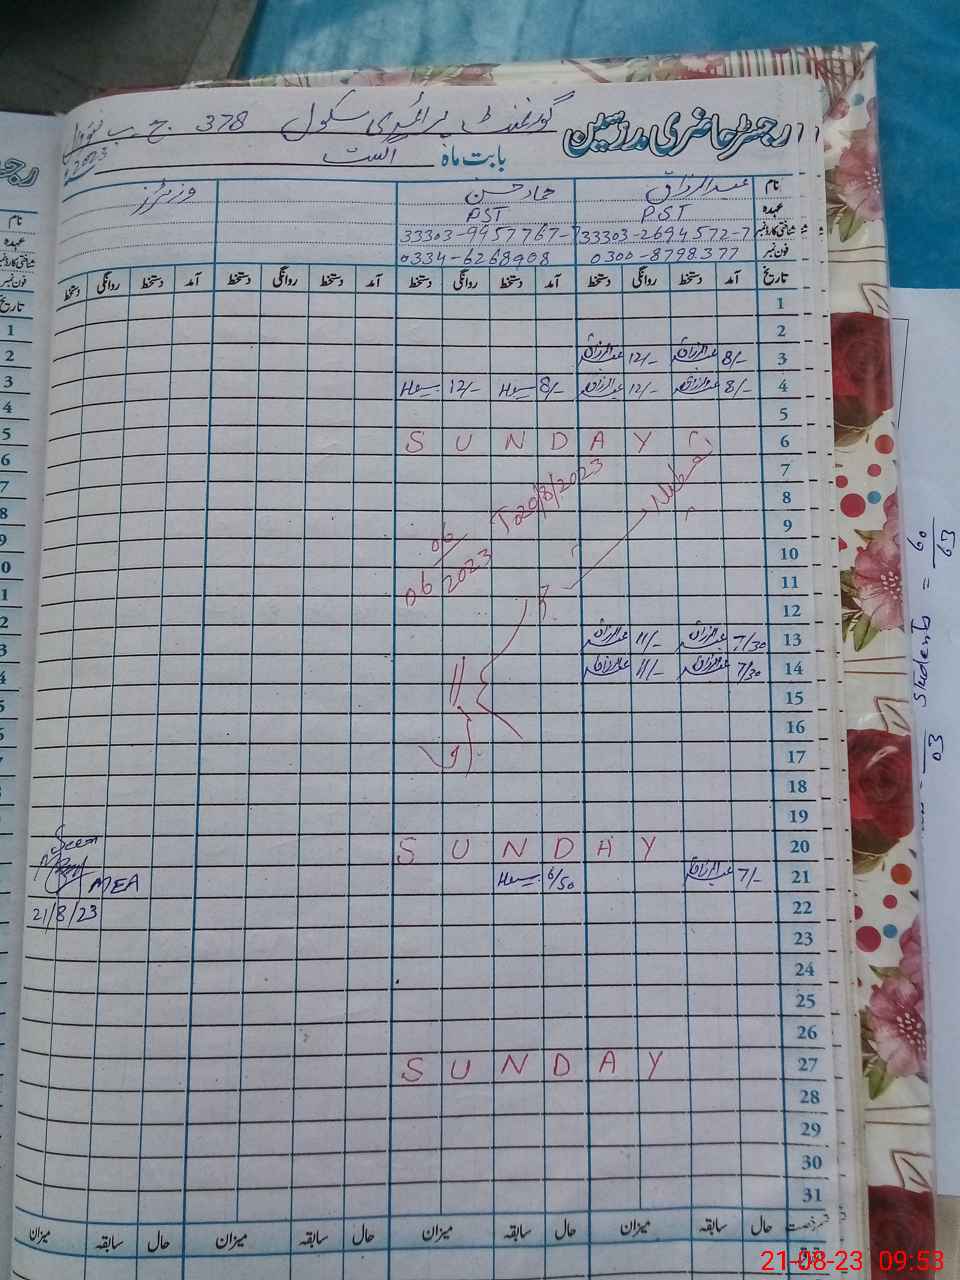 رجسٹر حاضری مدرسین گورنمنٹ پرائمری سکول 378 ج۔ب
بابت ماہ اگست 2023
نام عبدالرزاق حماد حسن وزیٹرز
عہدہ PST PST
شناختی کارڈ نمبر 33303-2694572-7 33303-9457767-7
فون نمبر 0300-8798377 0334-6268908
تاریخ آمد دستخط روانگی دستخط آمد دستخط روانگی دستخط آمد دستخط روانگی دستخط آمد دستخط روانگی دستخط
1
2
3 8/- عبدالرزاق 12/- عبدالرزاق
4 8/- عبدالرزاق 12/- عبدالرزاق 8/- 12/-
5
6 SUNDAY
7
8 To 20/8/2023
9
10 06
11 06/2023
12
13 7/30 عبدالرزاق 11/- عبدالرزاق
14 7/30 عبدالرزاق 11/- عبدالرزاق
15
16
17
18
19
20 SUNDAY Seen
21 7/- عبدالرزاق 6/50 MEA
22 21/8/23
23
24
25
26
27 SUNDAY
28
29
30
31
حال سابقہ میزان حال سابقہ میزان حال سابقہ میزان حال سابقہ میزان
03 Students = 60/63
21-08-23 09:53